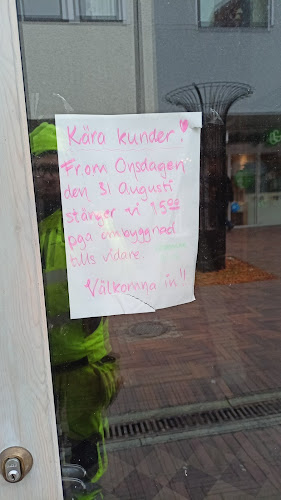 Kära kunder!
From Onsdagen
den 31 Augusti
stänger vi 15⁰⁰
pga ombyggnad
tills vidare.
Välkomna in!!